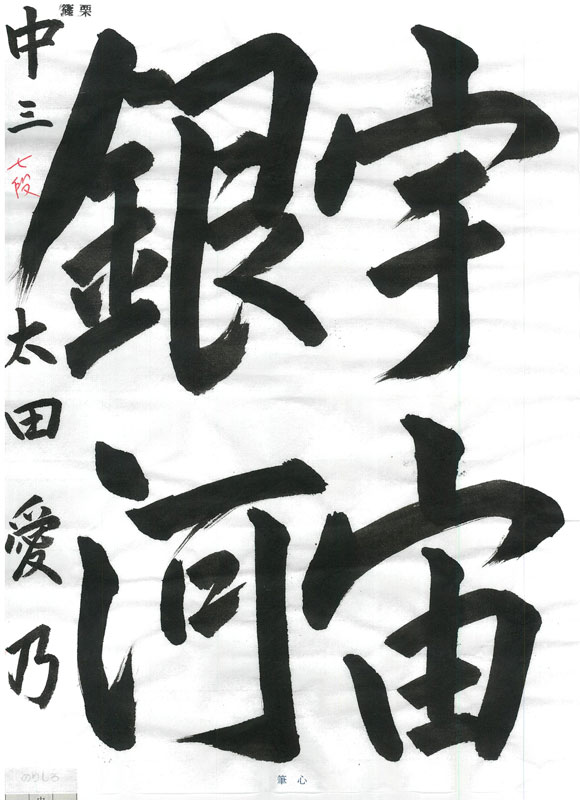 宇宙
銀河
中三 七段 太田愛乃
筆心
のりしろ